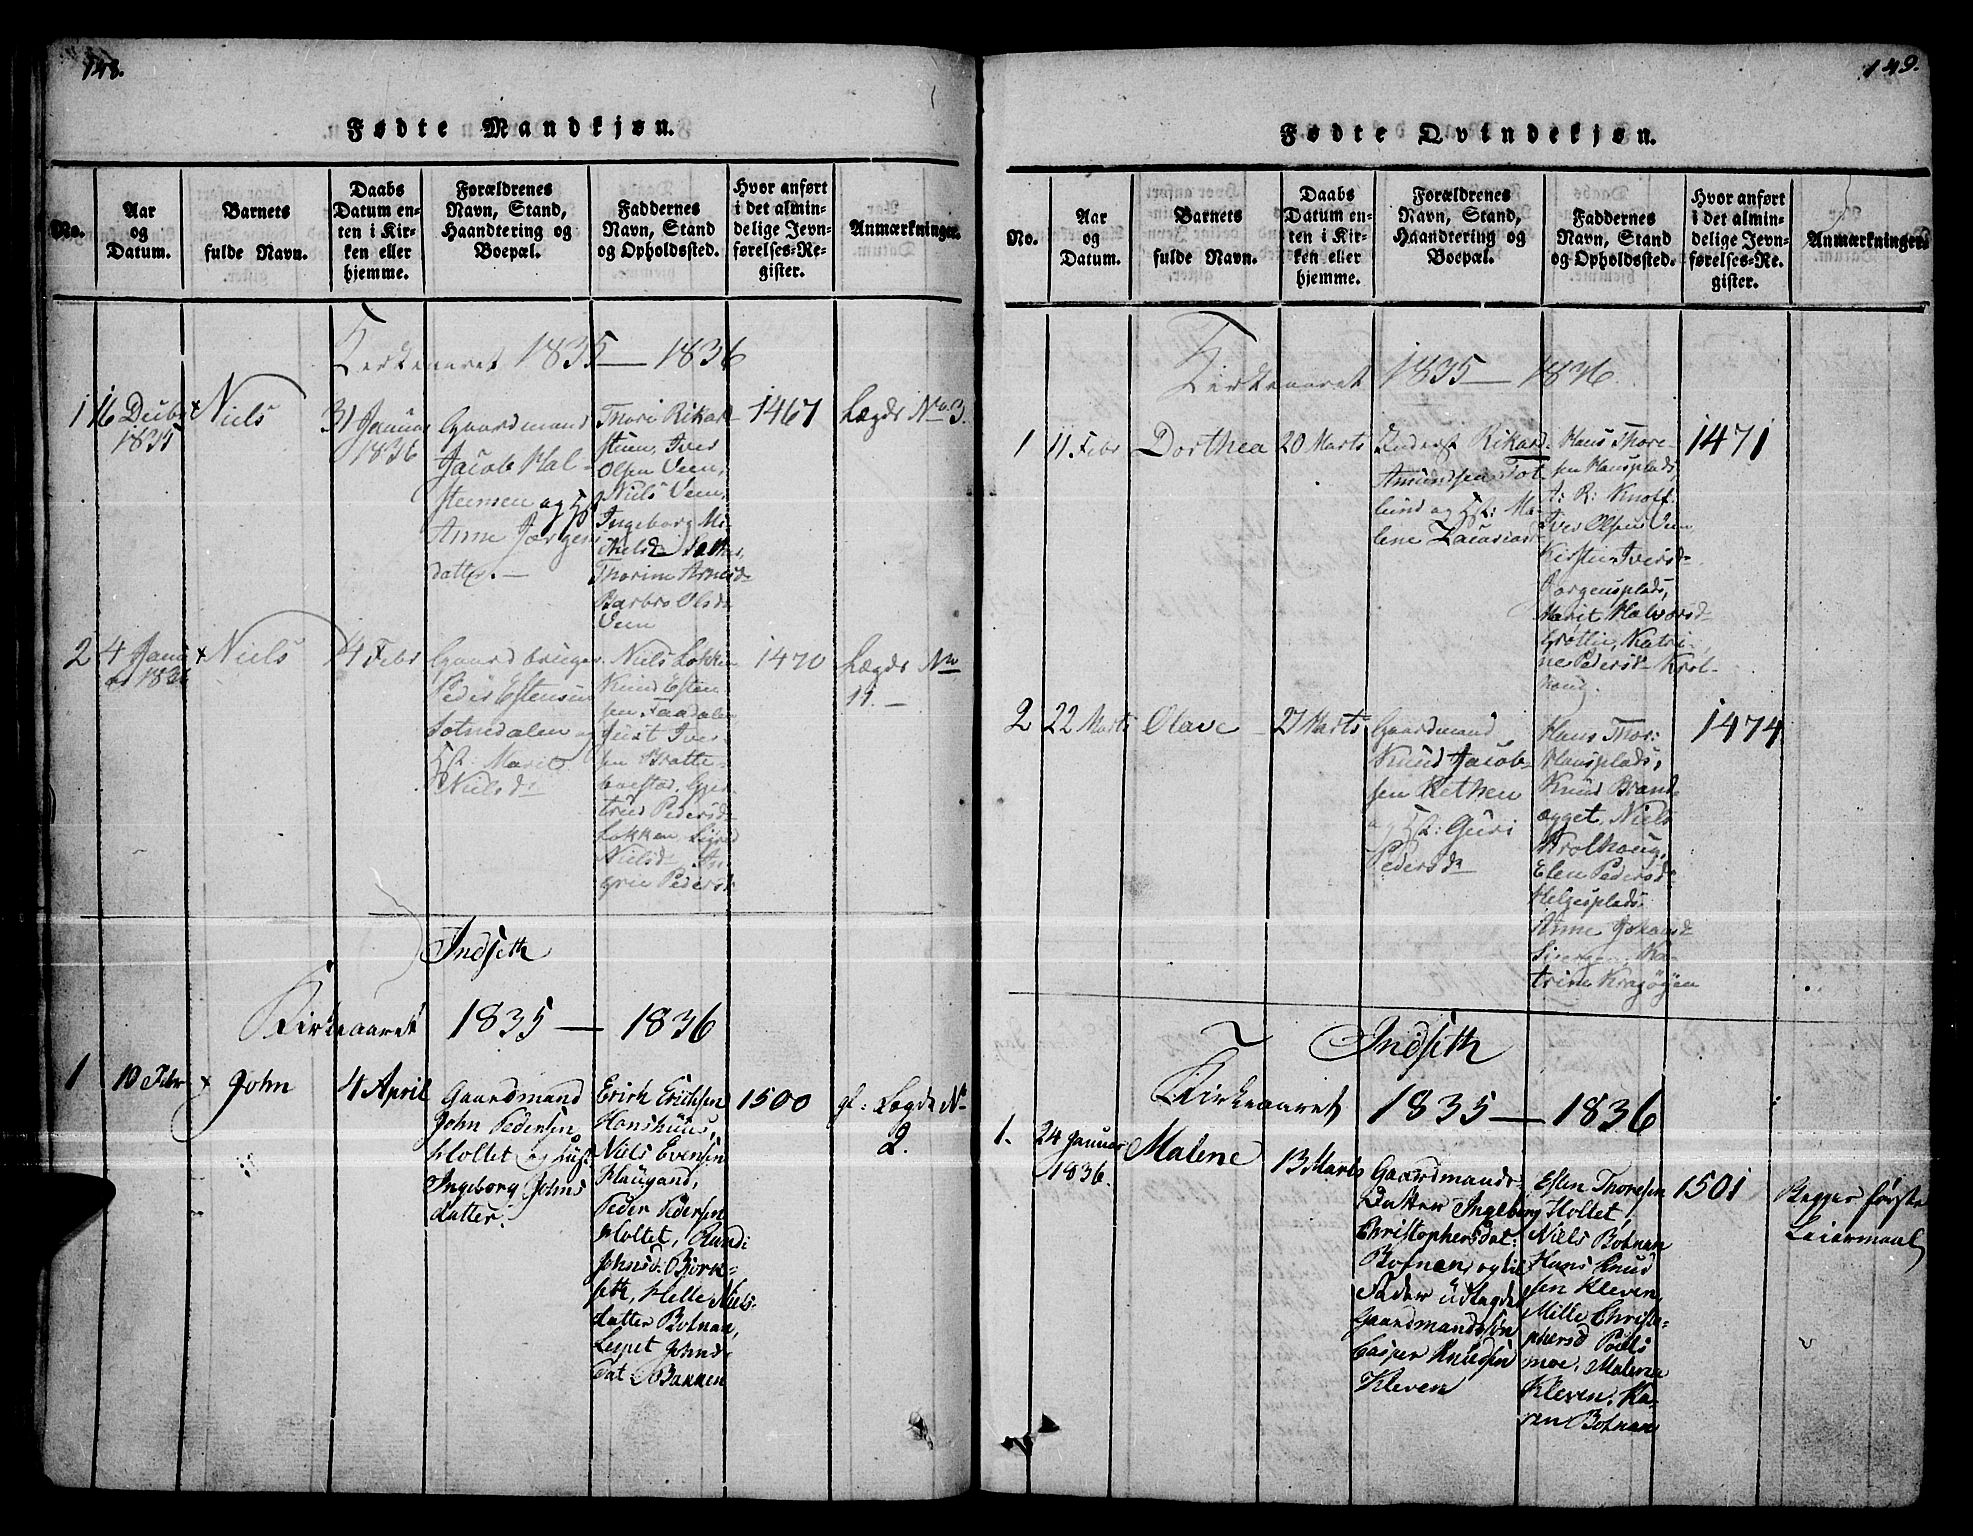 148.
Fødte Mandkjøn.
No.
Aar
og
Datum.
Barnets
fulde Navn.
Daabs
Datum en-
ten i Kir-
ken eller
hjemme.
Forældrenes
Navn, Stand,
Haandtering og
Boepæl.
Faddernes
Navn, Stand
og Opholdssted.
Hvor anført
i det almin-
delige Jevn-
førelses-Re-
gister.
Anmærkninger.
Kirkeaaret 1835 — 1836
1
16 Decbr
1835
Niels
31 Januar
1836
Gaardmand
Jacob Hal-
steensen og
Anne Jørgens
datter. —
Thori Rikar
steen, Iver
Olsen Veen,
Niels Veen,
Ingeborg Mi
Thorine Arnesd
Barbro Olsd
Veen
1467
Lægds No 3.
2
4 Janu
ar 1836
Niels
14 Febr
Gaardbruger
Peder Estensen
og
Marit
Nielsdr
Niels Løkken
Knud Esten
sen
Iver
sen Bratte
trud Pedersd
Løkken, Sigrid
Nielsd
Pedersd
1470
Lægds No
19. —
Indseth
Kirkeaaret 1835 — 1836
1
10 Febr
John
4 April
Gaardmand
John Pedersen
Holtet og Hust
Ingeborg Johns
datter.
Erich Erichsen
Hanshuus,
Niels Evensen
Haugand,
Peder Pedersen
Holtet, Randi
Johnsd. Bjørn-
seth, Helle Niels-
datter Botnan,
Johns
dat Bakken
1500
Lægds N
2.
149.
Fødte Qvindekjøn.
No.
Aar
og
Datum.
Barnets
fulde Navn.
Daabs
Datum en-
ten i Kir-
ken eller
hjemme.
Forældrenes
Navn, Stand,
Haandtering og
Boepæl.
Faddernes
Navn, Stand
og Opholdssted.
Hvor anført
i det almin-
delige Jevn-
førelses-Re-
gister.
Anmærkninger.
Kirkeaaret 1835 — 1836
1
11 Febr
Dorthea
20 Marts
Rikard
Amundsen Tot
lund og Hst: Ma-
lene Zacariasd
Hans Thore-
sen Hansplads
A: R: Knoff
Iver Olsen Veen
Kirstie Iversd-
Jørgensplads,
Marit Halvorsd
Grøttie, Katri-
ne Pedersd Krol-
houg.
1471
2
22 Marts
Olave
27 Marts
Gaardmand
Knud Jacob-
sen Rethen
og Hst: Guri
Pedersdr
Hans Thor:
Hansplads,
Knud Brand
egget, Niels
Krolhoug,
Elen Pedersd
Helgesplads,
Anne Johansd
Ka-
trine Kragøyen
1474
Indseth
Kirkeaaret 1835 — 1836
1.
24 Januar
1836.
Malene
13 Marts
Gaardmands-
Datter Ingeborg
Christophersdat:
Botnan, og til
Fader udlagde
Gaardmandssøn
Casper Knudsen
Kleven
Esten Thoresen
Holtet,
Niels Botnan
Hans Knud
sen Kleven,
Mille Christo-
phersd Pouls
moe, Malena
Kleven, Ka-
ren Botnan
1501
Begges første
Leiermaal